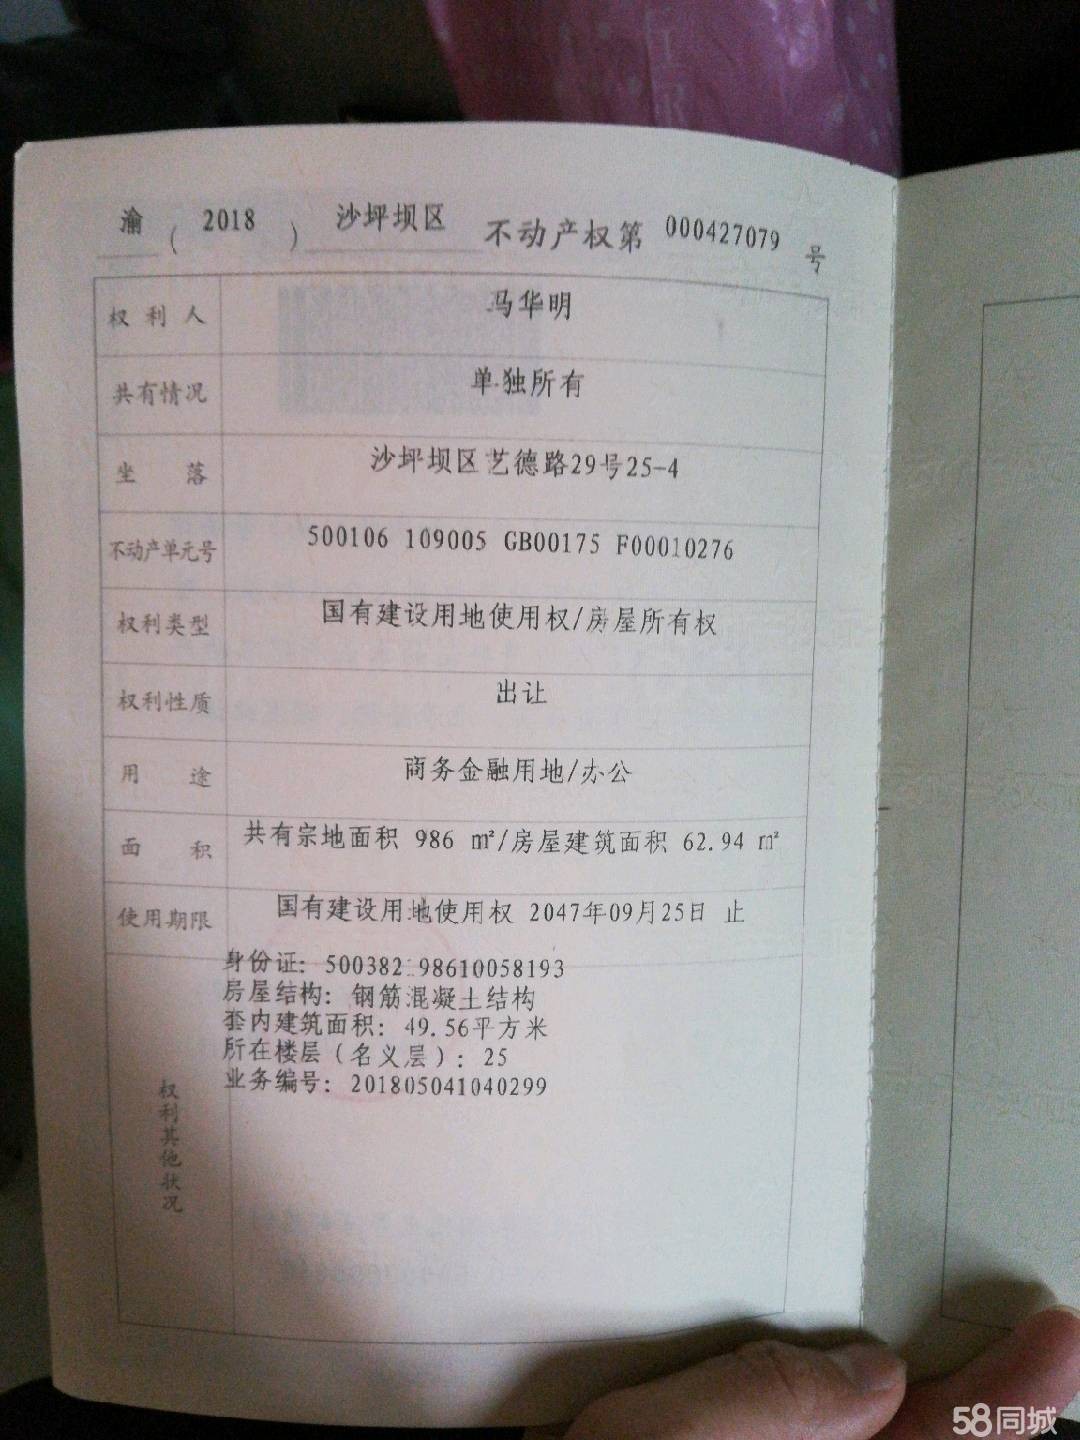 渝（2018）沙坪坝区不动产权第000427079号
权利人 马华明
共有情况 单独所有
坐落 沙坪坝区艺德路29号25-4
不动产单元号 500106 109005 GB00175 F00010276
权利类型 国有建设用地使用权/房屋所有权
权利性质 出让
用途 商务金融用地/办公
面积 共有宗地面积 986 ㎡/房屋建筑面积 62.94 ㎡
使用期限 国有建设用地使用权 2047年09月25日 止
权利其他状况
身份证：500382198610058193
房屋结构：钢筋混凝土结构
套内建筑面积：49.56平方米
所在楼层（名义层）：25
业务编号：201805041040299
58同城